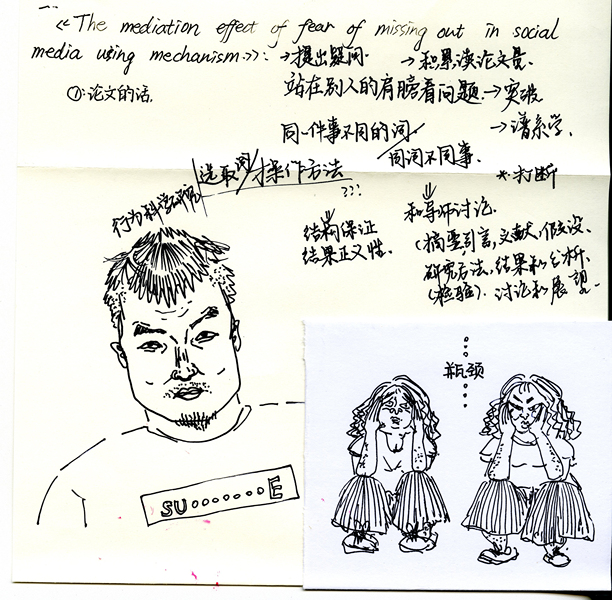 《The mediation effect of fear of missing out in social
media using mechanism》:
→提出疑问. →积累读论文量.
①:论文的话.
站在别人的肩膀看问题→突破
同一件事不同的词.
同词不同事.
→谱系学.
*打断
选取词/操作方法
???
行为科学研究
结构保证
结果正义性.
和导师讨论.
(摘要引言,文献,假设,
研究方法,结果和分析,
(检验).讨论和展望.
SU.......E
瓶颈